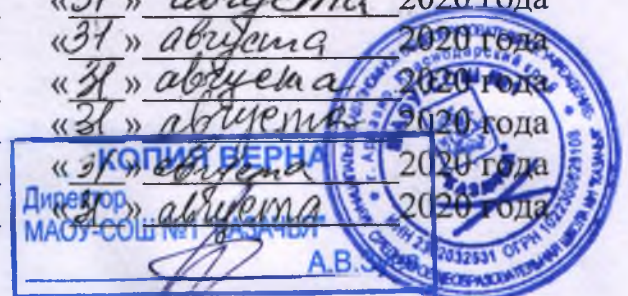 «31» августа 2020 года
«31» августа 2020 года
«31» августа 2020 года
«31» августа 2020 года
«31» августа 2020 года
«31» августа 2020 года
КОПИЯ ВЕРНА
Директор
МАОУ-СОШ №1 "КАЗАЧЬЯ"
А.В.
Краснодарский край